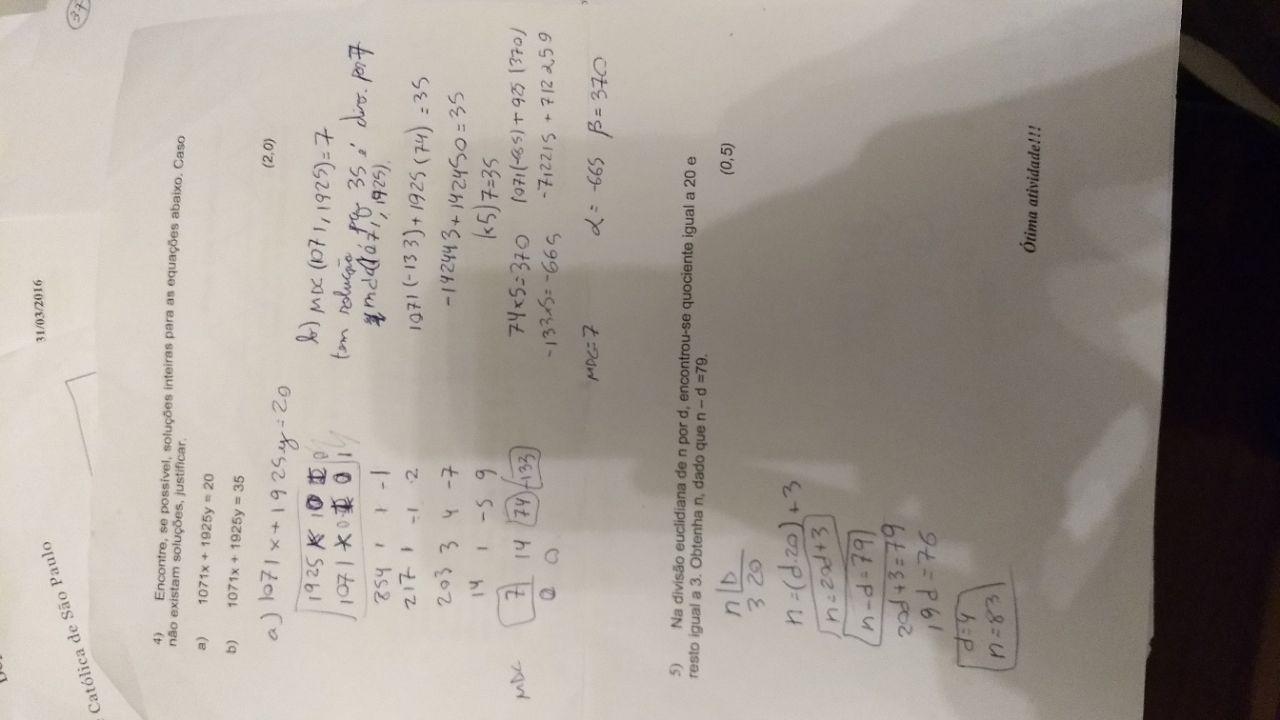 31/03/2016
Católica de São Paulo
37
4) Encontre, se possível, soluções inteiras para as equações abaixo. Caso
não existam soluções, justificar.
a) 1071x + 1925y = 20
b) 1071x + 1925y = 35
(2,0)
a) 1071x + 1925y = 20
1925 1 0
1071 0 1
854 1 1 -1
217 1 -1 2
203 3 4 -7
14 1 -5 9
MDC 7 14 74 -133
0 0
b) MDC (1071, 1925) = 7
tem solução pq 35 é divs. por 7
mdc(1071, 1925).
1071(-133) + 1925(74) = 35
-142443 + 142450 = 35
(x5) 7=35
74x5=370 1071(-665) + 925(370)
-133x5=-665 -712215 + 712259
MDC=7 α = -665 β = 370
5) Na divisão euclidiana de n por d, encontrou-se quociente igual a 20 e
resto igual a 3. Obtenha n, dado que n – d =79.
(0,5)
n D
3 20
n = (d20) + 3
n = 20d + 3
n - d = 79
20d + 3 = 79
19d = 76
d = 4
n = 83
Ótima atividade!!!